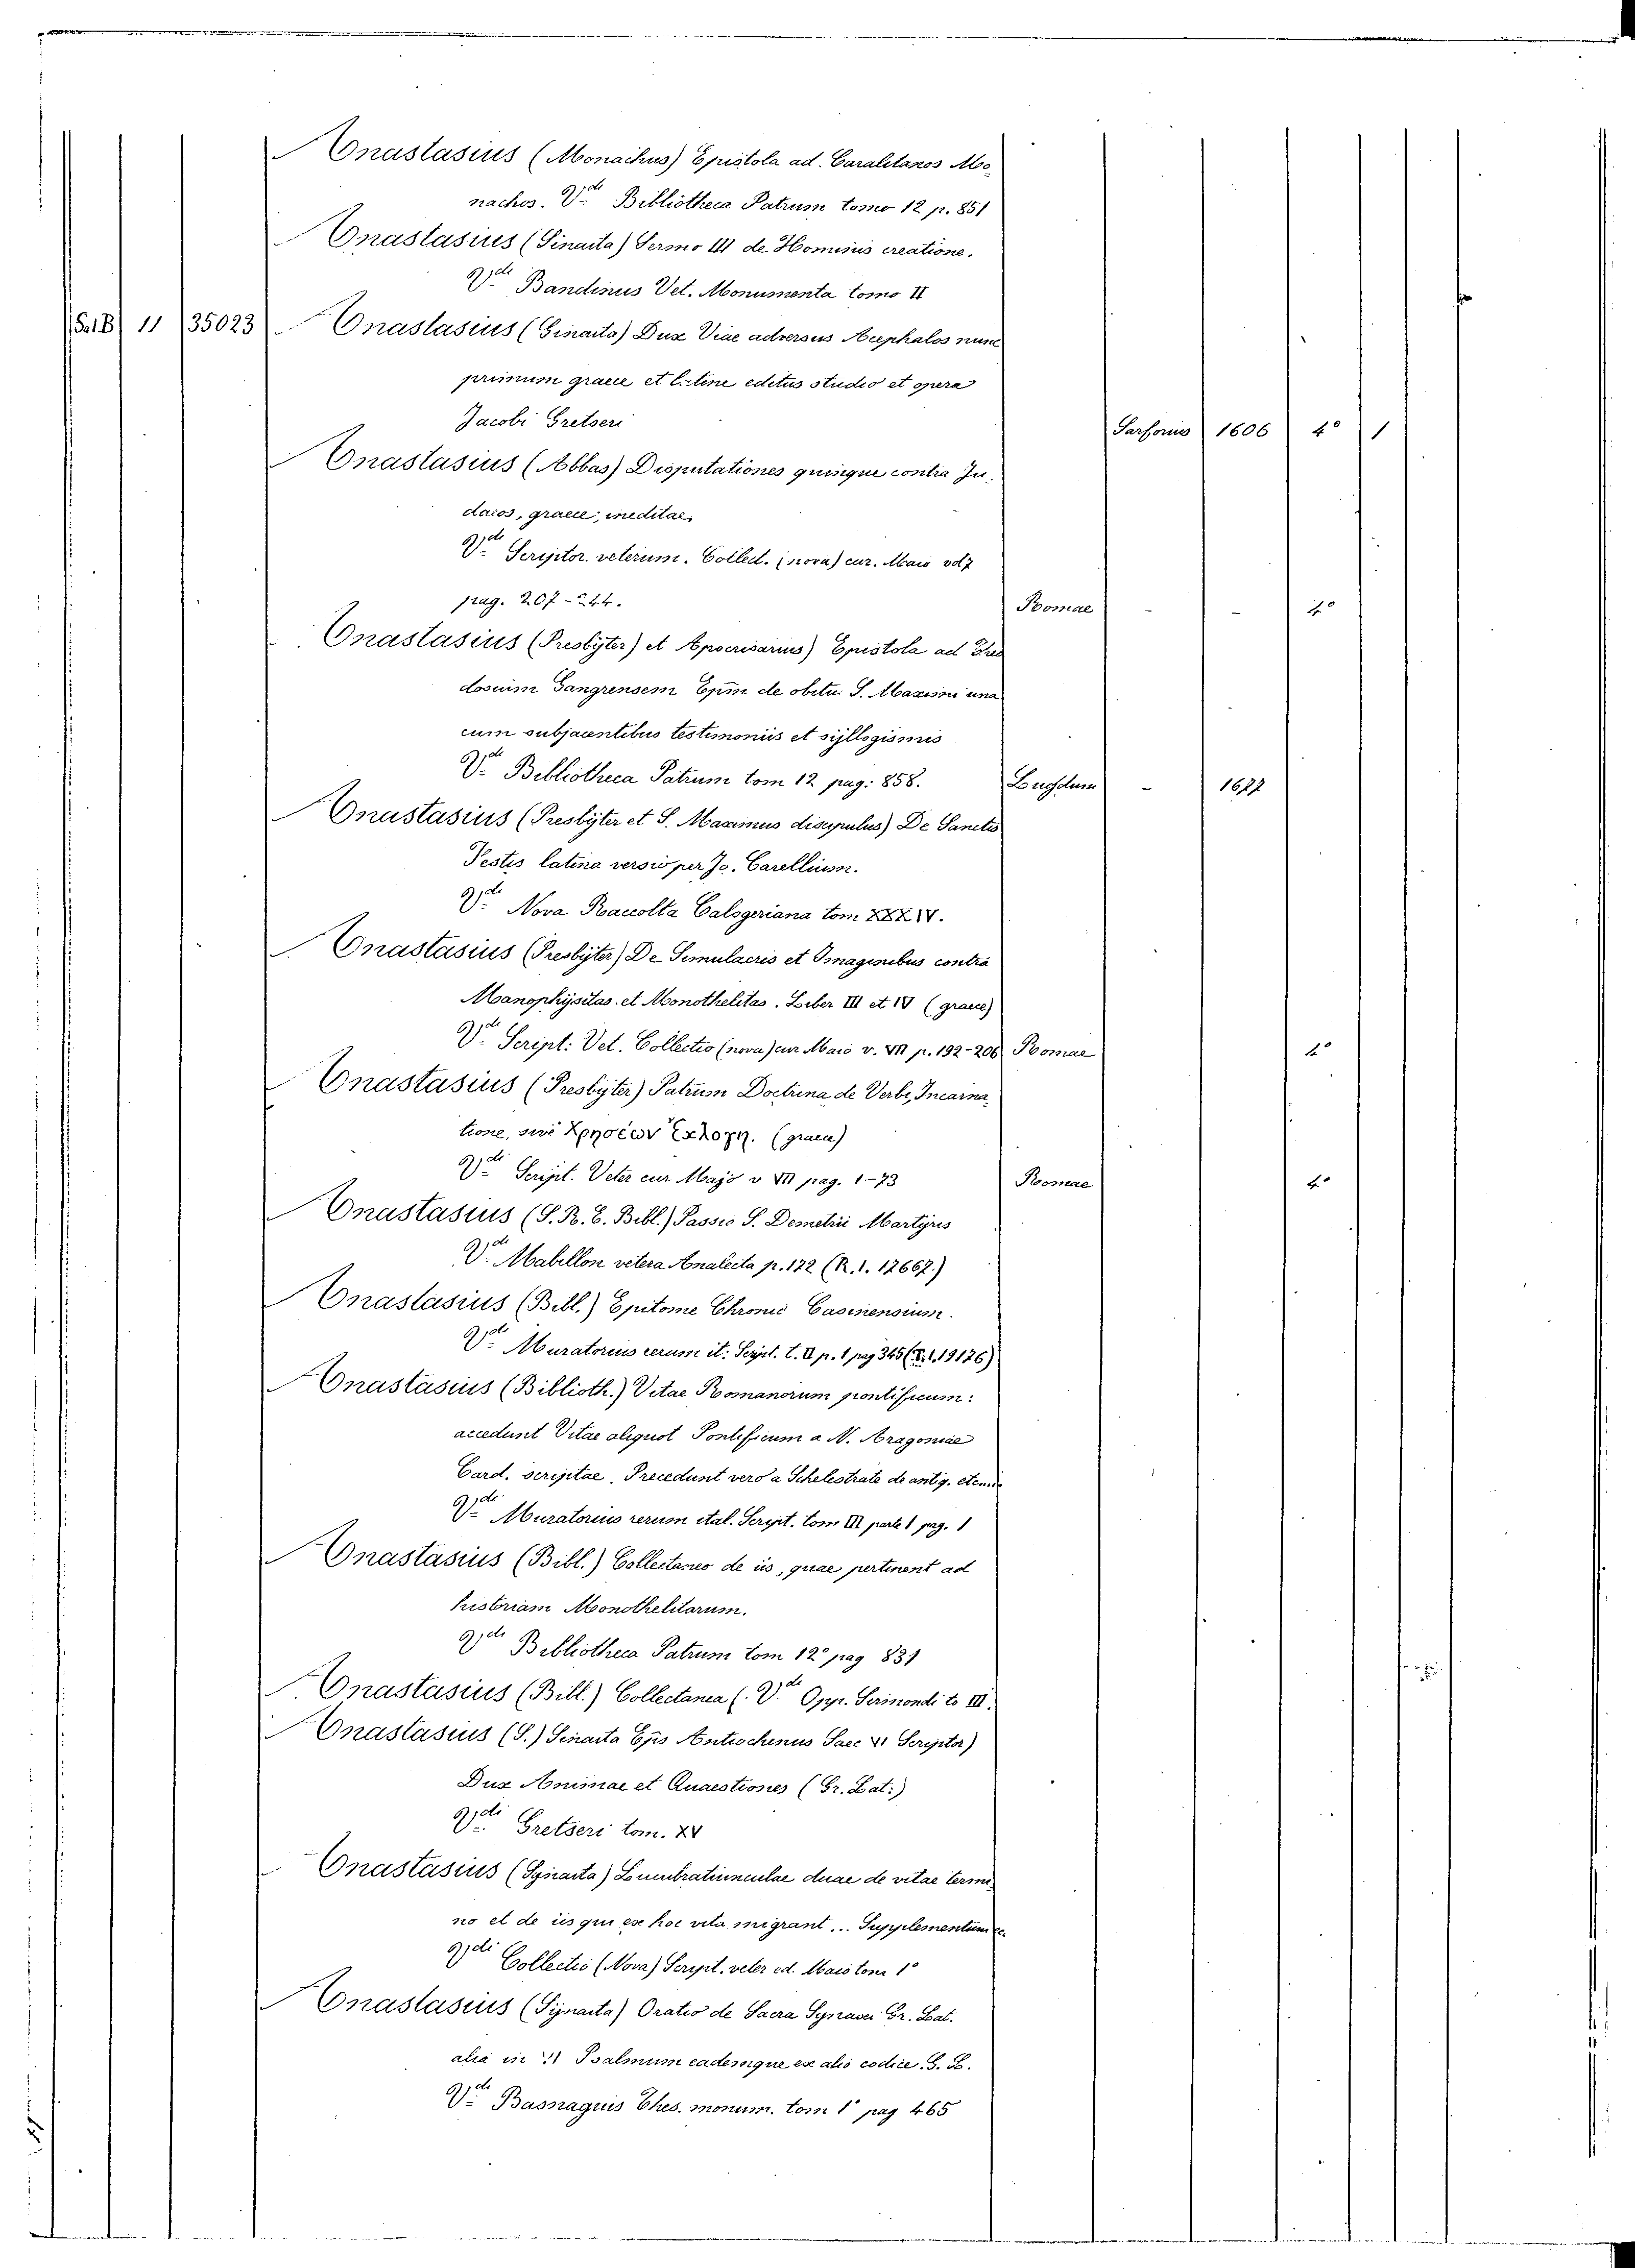 Anastasius (Monachus) Epistola ad. Caralitanos Mo-
nachos. V.de Bibliotheca Patrum tomo 12 p. 851
Anastasius (Sinaita) Sermo III de Hominis creatione.
V.de Bandinus Vet. Monumenta tomo II
Sal B 11 35023 Anastasius (Sinaita) Dux Viae adversus Acephalos nunc
primum graece et latine editus studio et opera
Jacobi Gretseri Sartorius 1606 4° 1
Anastasius (Abbas) Disputationes quinque contra Ju-
daios, graece, ineditae,
V.de Scriptor. veterum. Collect. (nova) cur. Maio vol 7
pag. 207-244. Romae - - 4°
Anastasius (Presbyter) et Apocrisarius) Epistola ad Theo
dosium Gangrensem Epm de obitu S. Maximi una
cum subjacentibus testimoniis et syllogismis
V.de Bibliotheca Patrum tom 12 pag: 858. Lugdum - 1677
Anastasius (Presbyter et S. Maximus discipulus) De Sanctis
Festis latina versio per Jo. Carellium.
V.de Nova Raccolta Calogeriana tom XXXIV.
Anastasius (Presbyter) De Simulacris et Imaginibus contra
Manophysitas et Monothelitas. Liber III et IV (graece)
V.de Script: Vet. Collectio (nova) cur Maio v. VII p. 192-206 Romae 4°
Anastasius (Presbyter) Patrum Doctrina de Verbi Incarna-
tione, sive Χρησεων Εκλογη. (graece)
V.de Script. Veter cur Majo v VII pag. 1-73 Romae 4°
Anastasius (S. R. E. Bibl.) Passio S. Demetrii Martyris
V.de Mabillon vetera Analecta p. 172 (R. 1. 17667.)
Anastasius (Bibl.) Epitome Chronic Casinensium.
V.de Muratorius rerum it: Script. t. II p. 1 pag 345 (R. 1. 19176)
Anastasius (Biblioth.) Vitae Romanorum pontificum:
accedunt Vitae aliquot Pontificum a N. Aragoniae
Card. scriptae. Precedunt vero a Schelestrate de antiq.
V.de Muratorius rerum ital. Script. tom III parte 1 pag. 1
Anastasius (Bibl.) Collectaneo de iis, quae pertinent ad
historiam Monothelitarum.
V.de Bibliotheca Patrum tom 12° pag 831
Anastasius (Bibl.) Collectanea (. V.de Opp. Sirmondi to III.
Anastasius (S.) Sinaita Eps Antiochenus Saec VI Scriptor)
Dux Animae et Quaestiones (Gr. Lat:)
V.di Gretseri tom. XV
Anastasius (Synaita) Lucubratiunculae duae de vitae termi-
no et de iis qui ex hoc vita migrant... Supplementum
V.di Collectio (Nova) Script. veter ed. Maio tom 1°
Anastasius (Synaita) Oratio de Sacra Synaxi Gr. Lat.
alia in VI Psalmum eademque ex alio codice. G. L.
V.de Basnagius Thes. monum. tom 1° pag 465